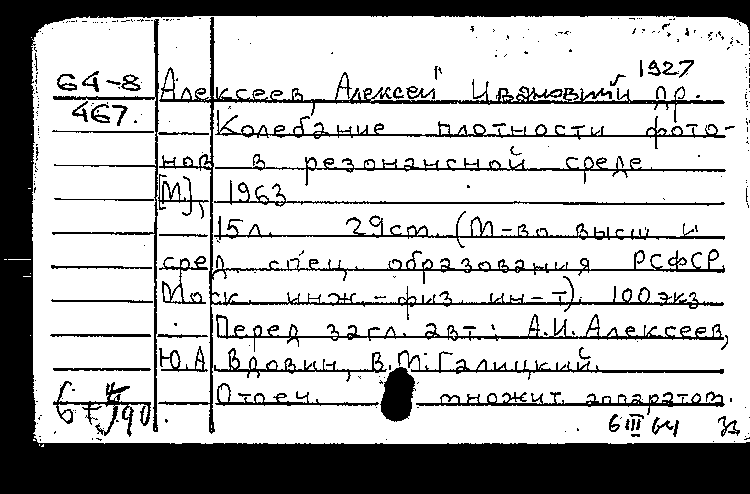 1927
64-8 Алексеев, Алексей Иванович и др.
467. Колебание плотности фото-
нов в резонансной среде
[М], 1963
15 л. 29 cm. (М-во высш и
сред спец. образования РСФСР.
Моск. инж.-физ ин-т). 100 экз
Перед загл. авт.: А.И. Алексеев,
Ю.А. Вдовин, В.М. Галицкий.
Отпеч. множит. аппаратом.
6 III 64